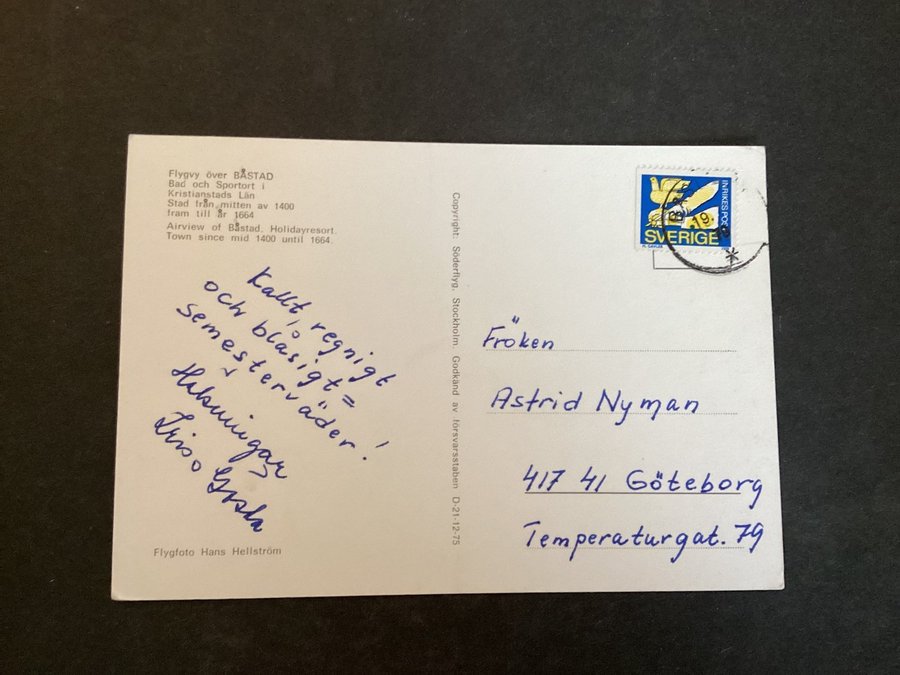 Flygvy över BÅSTAD
Bad och Sportort i
Kristianstads Län
Stad från mitten av 1400
fram till år 1664
Airview of Båstad. Holidayresort.
Town since mid 1400 until 1664.
Kallt, regnigt
och blåsigt =
semesterväder!
Hälsningar
Flygfoto Hans Hellström
Copyright: Söderflyg, Stockholm. Godkänd av försvarsstaben D-21-12-75
INRIKES POST
.19.
SVERIGE
Fröken
Astrid Nyman
417 41 Göteborg
Temperaturgat. 79